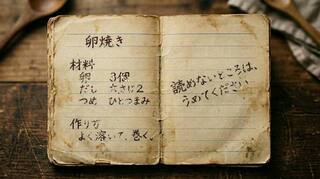 卵焼き
材料
卵 3個
だし 大さじ2
つめ ひとつまみ
作り方
よく溶いて、巻く。
読めないところは、
うめてください